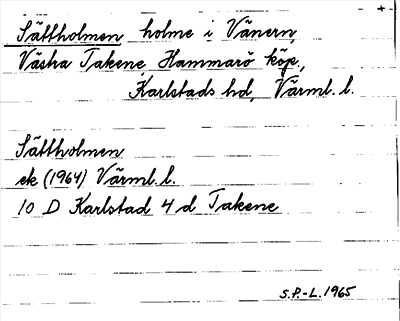 Sättholmen holme i Vänern,
Västra Takene, Hammarö köp.,
Karlstads hd, Värml. l.
Sättholmen
ek (1964) Värml. l.
10 D Karlstad 4 d Takene
S.P.-L. 1965